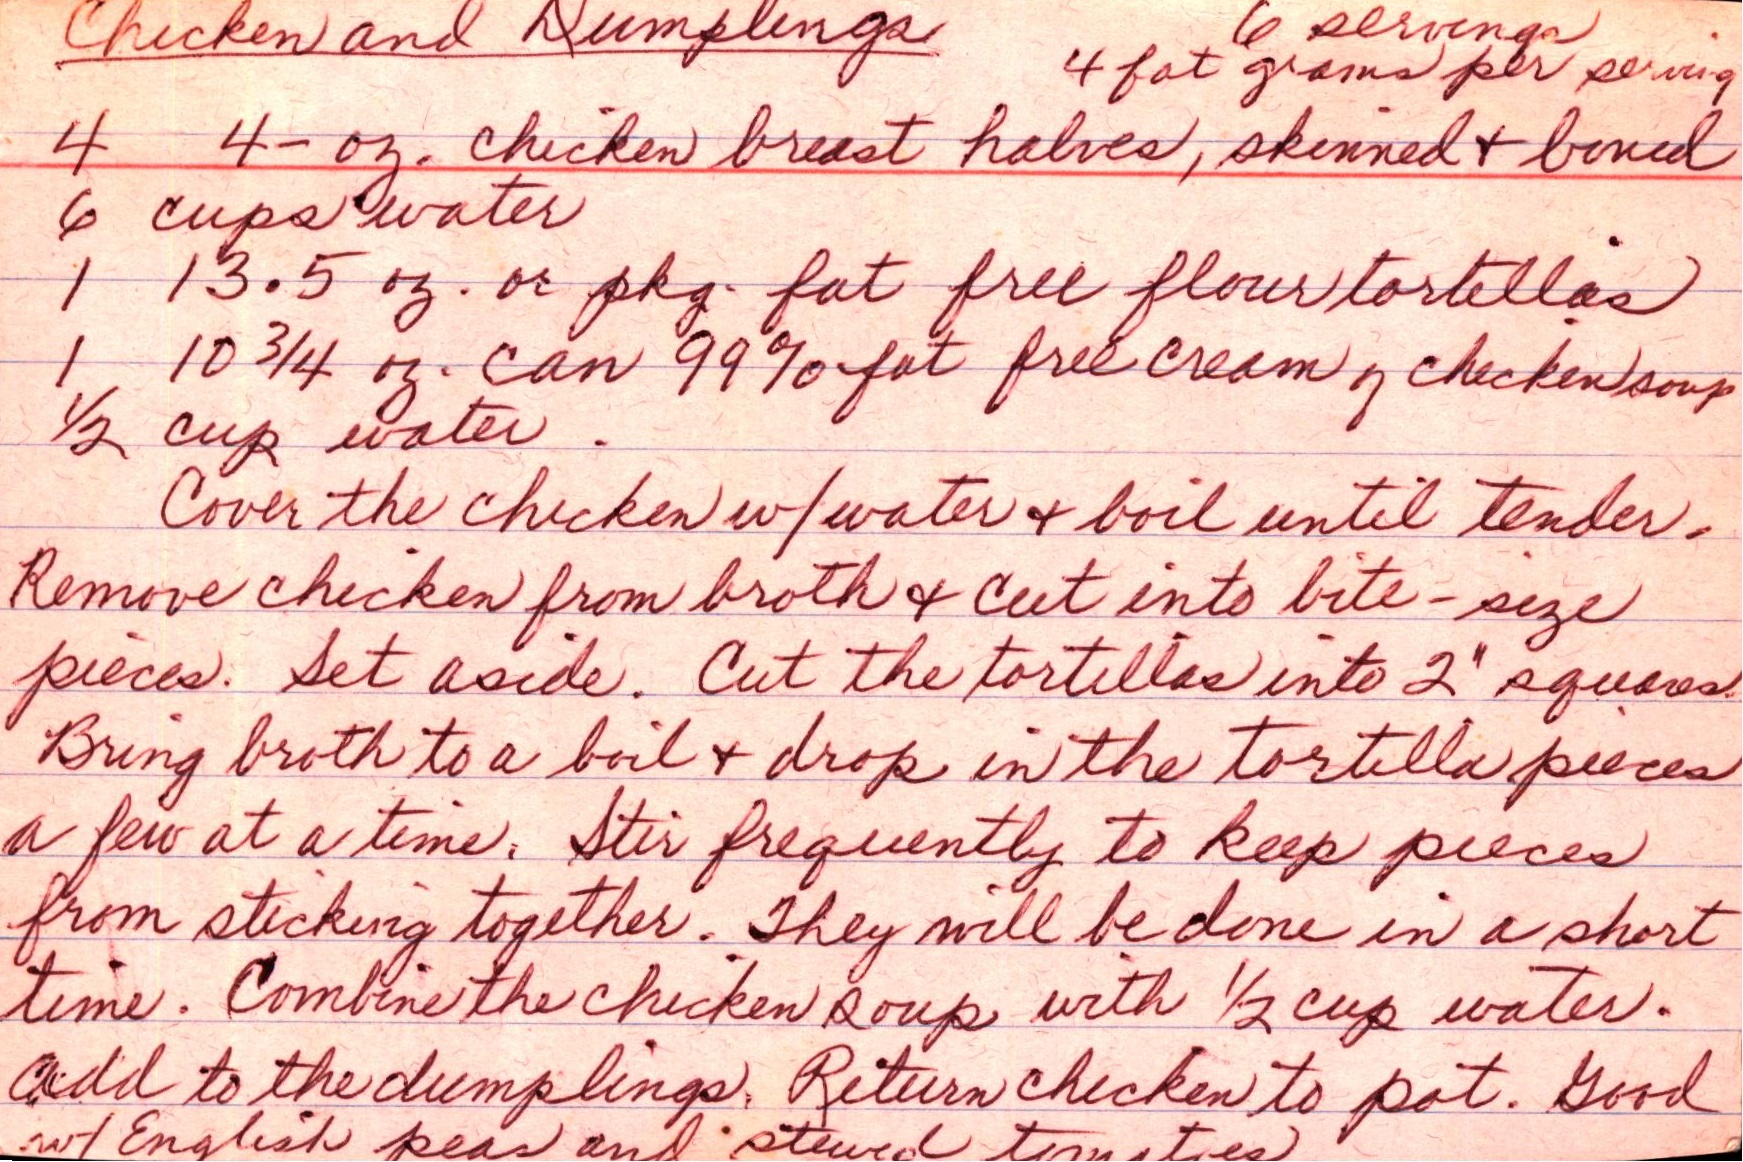 Chicken and Dumplings
6 servings
4 fat grams per serving
4 4-oz. chicken breast halves, skinned + boned
6 cups water
1 13.5 oz. or pkg. fat free flour tortillas
1 10 3/4 oz. can 99% fat free cream of chicken soup
1/2 cup water.
Cover the chicken w/water + boil until tender.
Remove chicken from broth + cut into bite-size
pieces. Set aside. Cut the tortillas into 2" squares.
Bring broth to a boil + drop in the tortilla pieces
a few at a time. Stir frequently to keep pieces
from sticking together. They will be done in a short
time. Combine the chicken soup with 1/2 cup water.
Add to the dumplings. Return chicken to pot. Good
w/ English peas and stewed tomatoes